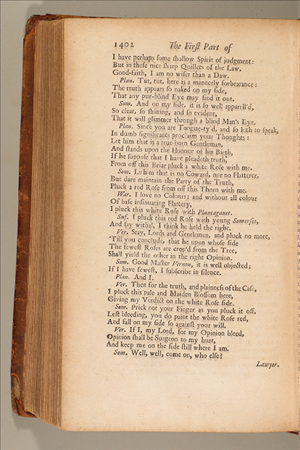 1402 The First Part of
I have perhaps some shallow Spirit of judgment:
But in these nice sharp Quillets of the Law,
Good-faith, I am no wiser than a Daw.
Plan. Tut, tut, here is a mannerly forbearance:
The truth appears so naked on my side,
That any pur-blind Eye may find it out.
Som. And on my side, it is so well apparell'd,
So clear, so shining, and so evident,
That it will glimmer through a blind Man's Eye.
Plan. Since you are Tongue-ty'd, and so loth to speak,
In dumb significants proclaim your Thoughts:
Let him that is a true-born Gentleman,
And stands upon the Honour of his Birth,
If he suppose that I have pleaded truth,
From off this Briar pluck a white Rose with me.
Som. Let him that is no Coward, nor no Flatterer,
But dare maintain the Party of the Truth,
Pluck a red Rose from off this Thorn with me.
War. I love no Colours; and without all colour
Of base insinuating Flattery,
I pluck this white Rose with Plantagenet.
Suf. I pluck this red Rose with young Somerset,
And say withal, I think he held the right.
Ver. Stay, Lords and Gentlemen, and pluck no more,
'Till you conclude, that he upon whose side
The fewest Roses are crop'd from the Tree,
Shall yield the other in the right Opinion.
Som. Good Master Vernon, it is well objected;
If I have fewest, I subscribe in silence.
Plan. And I.
Ver. Then for the truth, and plainness of the Case,
I pluck this pale and Maiden Blossom here,
Giving my Verdict on the white Rose side.
Som. Prick not your Finger as you pluck it off,
Lest bleeding, you do paint the white Rose red,
And fall on my side so against your will.
Ver. If I, my Lord, for my Opinion bleed,
Opinion shall be Surgeon to my hurt,
And keep me on the side still where I am.
Som. Well, well, come on, who else?
Lawyer.